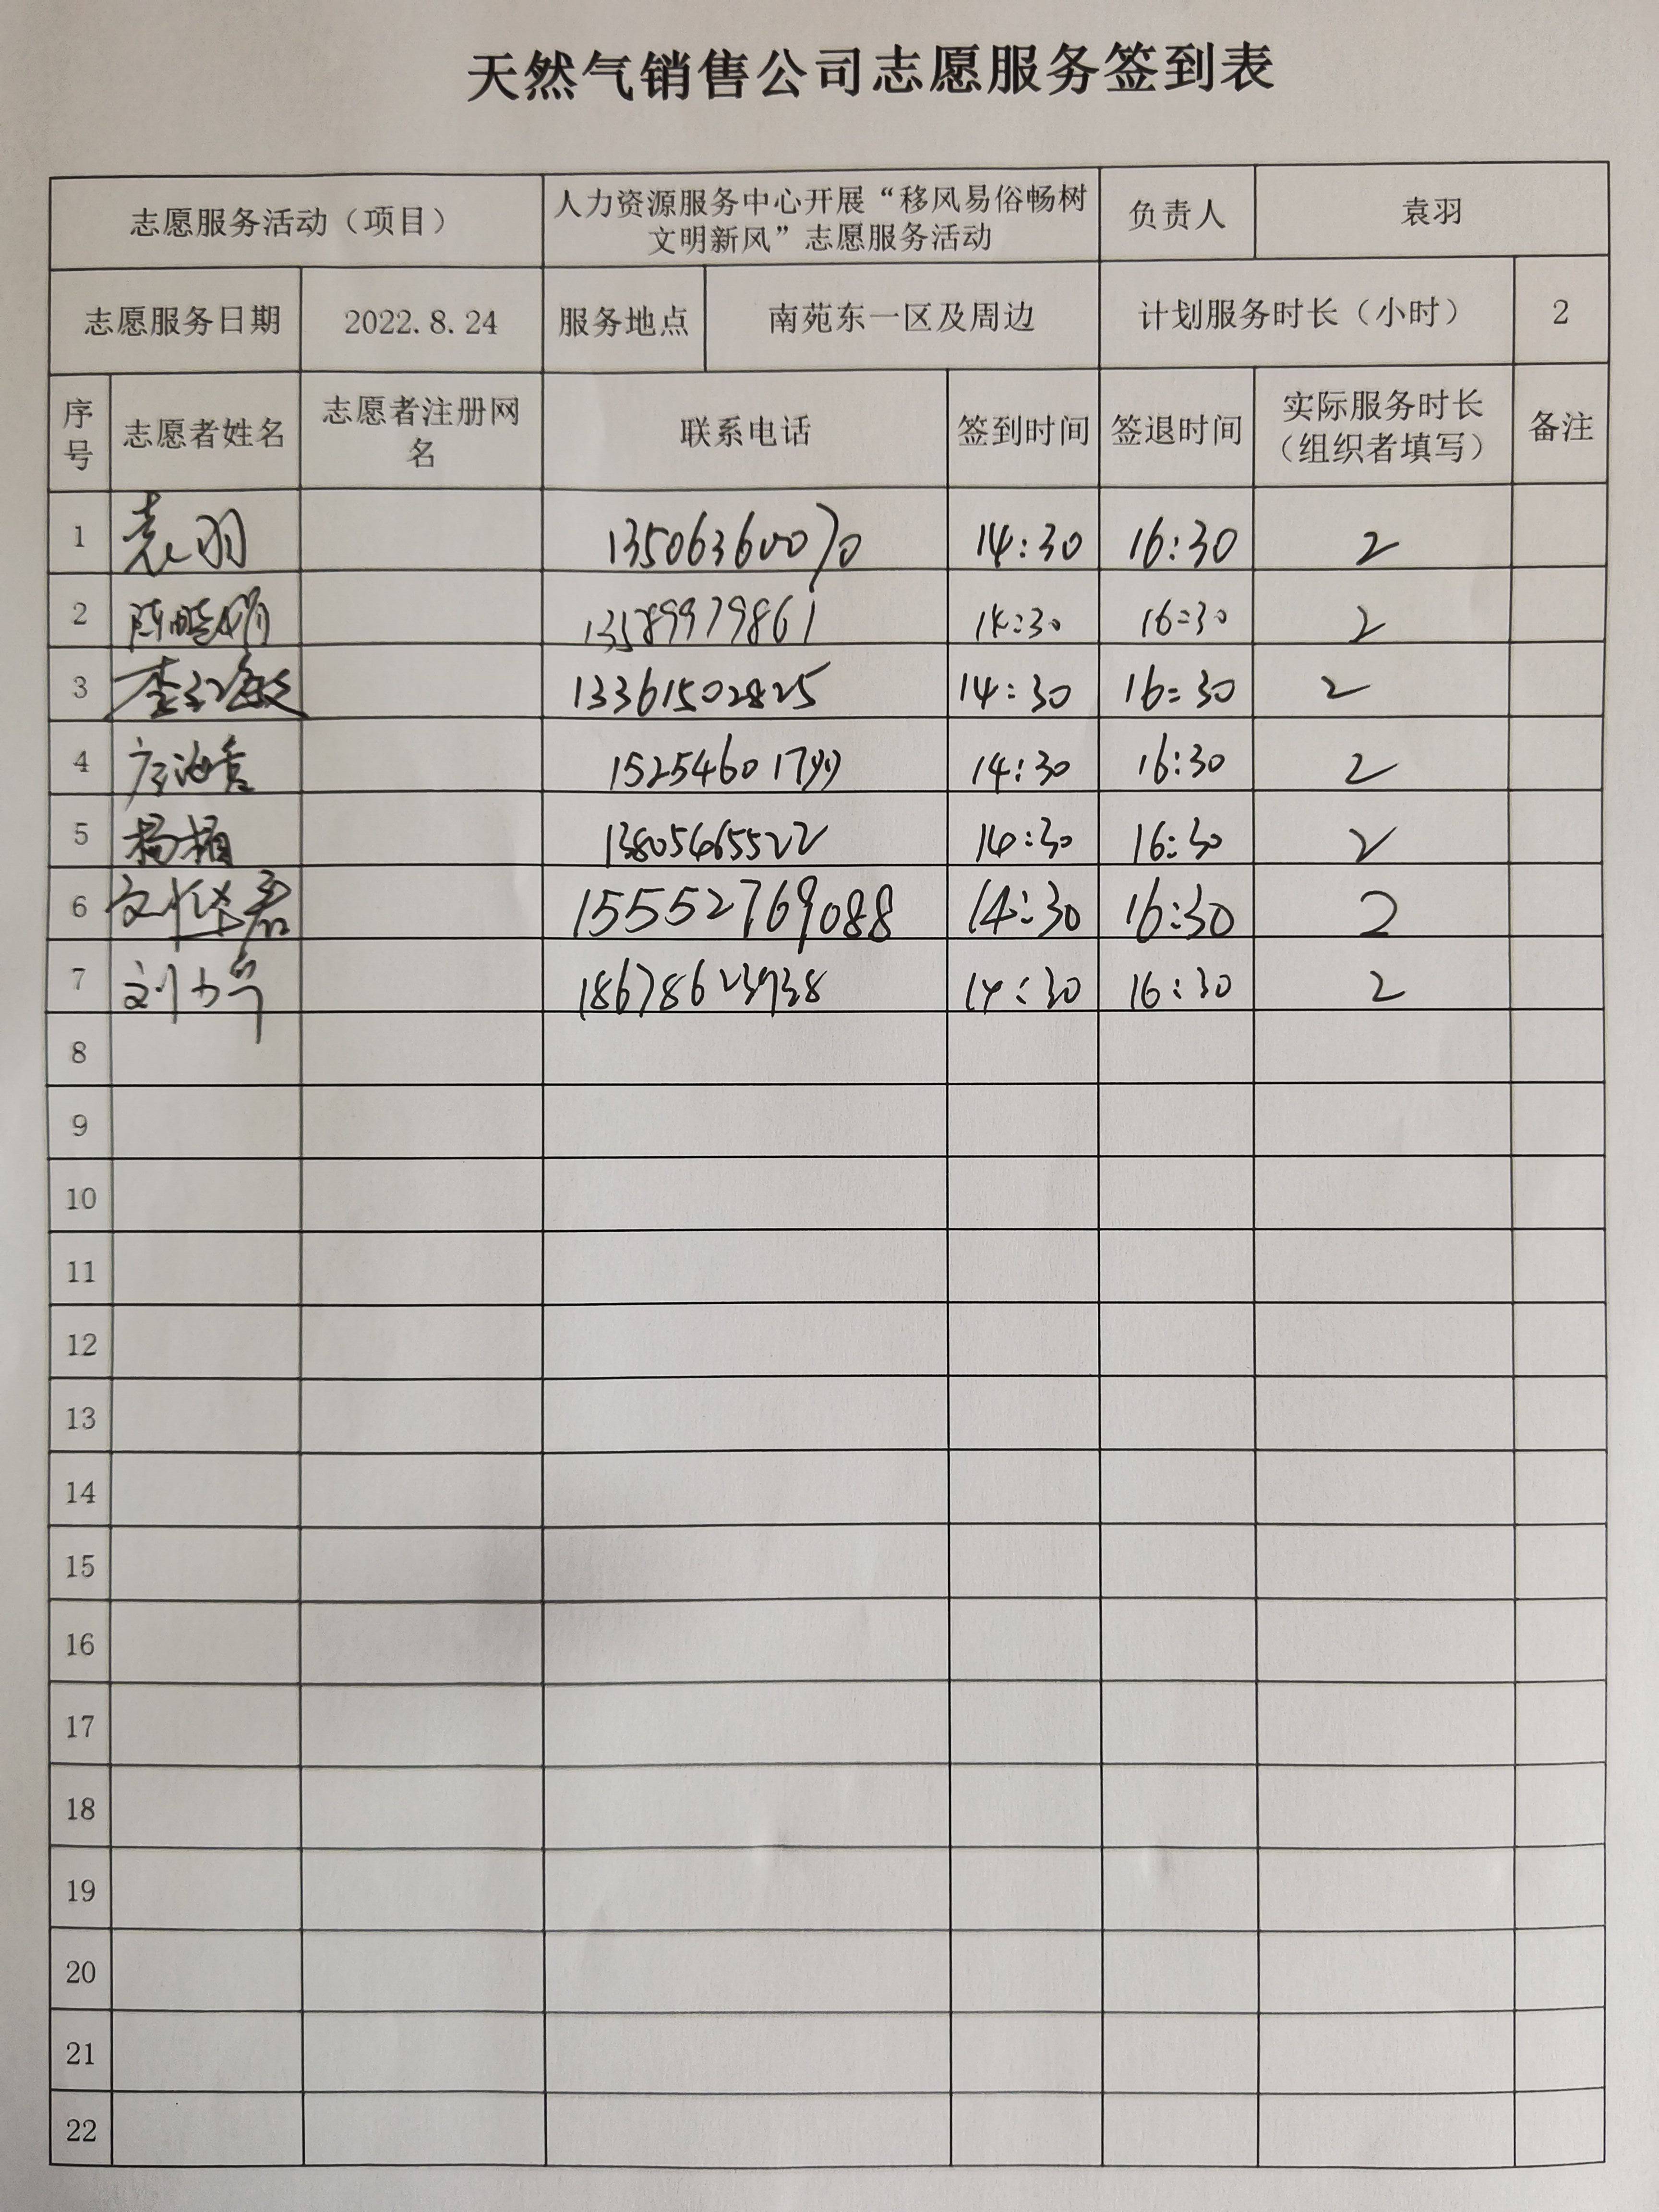 天然气销售公司志愿服务签到表
志愿服务活动（项目） 人力资源服务中心开展“移风易俗畅树 负责人 袁羽
文明新风”志愿服务活动
志愿服务日期 2022.8.24 服务地点 南苑东一区及周边 计划服务时长（小时） 2
序 志愿者姓名 志愿者注册网 联系电话 签到时间 签退时间 实际服务时长 备注
号 名 （组织者填写）
1 袁羽 13506360070 14:30 16:30 2
2 陈晓娟 13589979861 14:30 16:30 2
3 李红敏 13361502825 14:30 16:30 2
4 14:30 16:30 2
5 杨梅 13805465522 14:30 16:30 2
6 15552769088 14:30 16:30 2
7 14:30 16:30 2
8
9
10
11
12
13
14
15
16
17
18
19
20
21
22